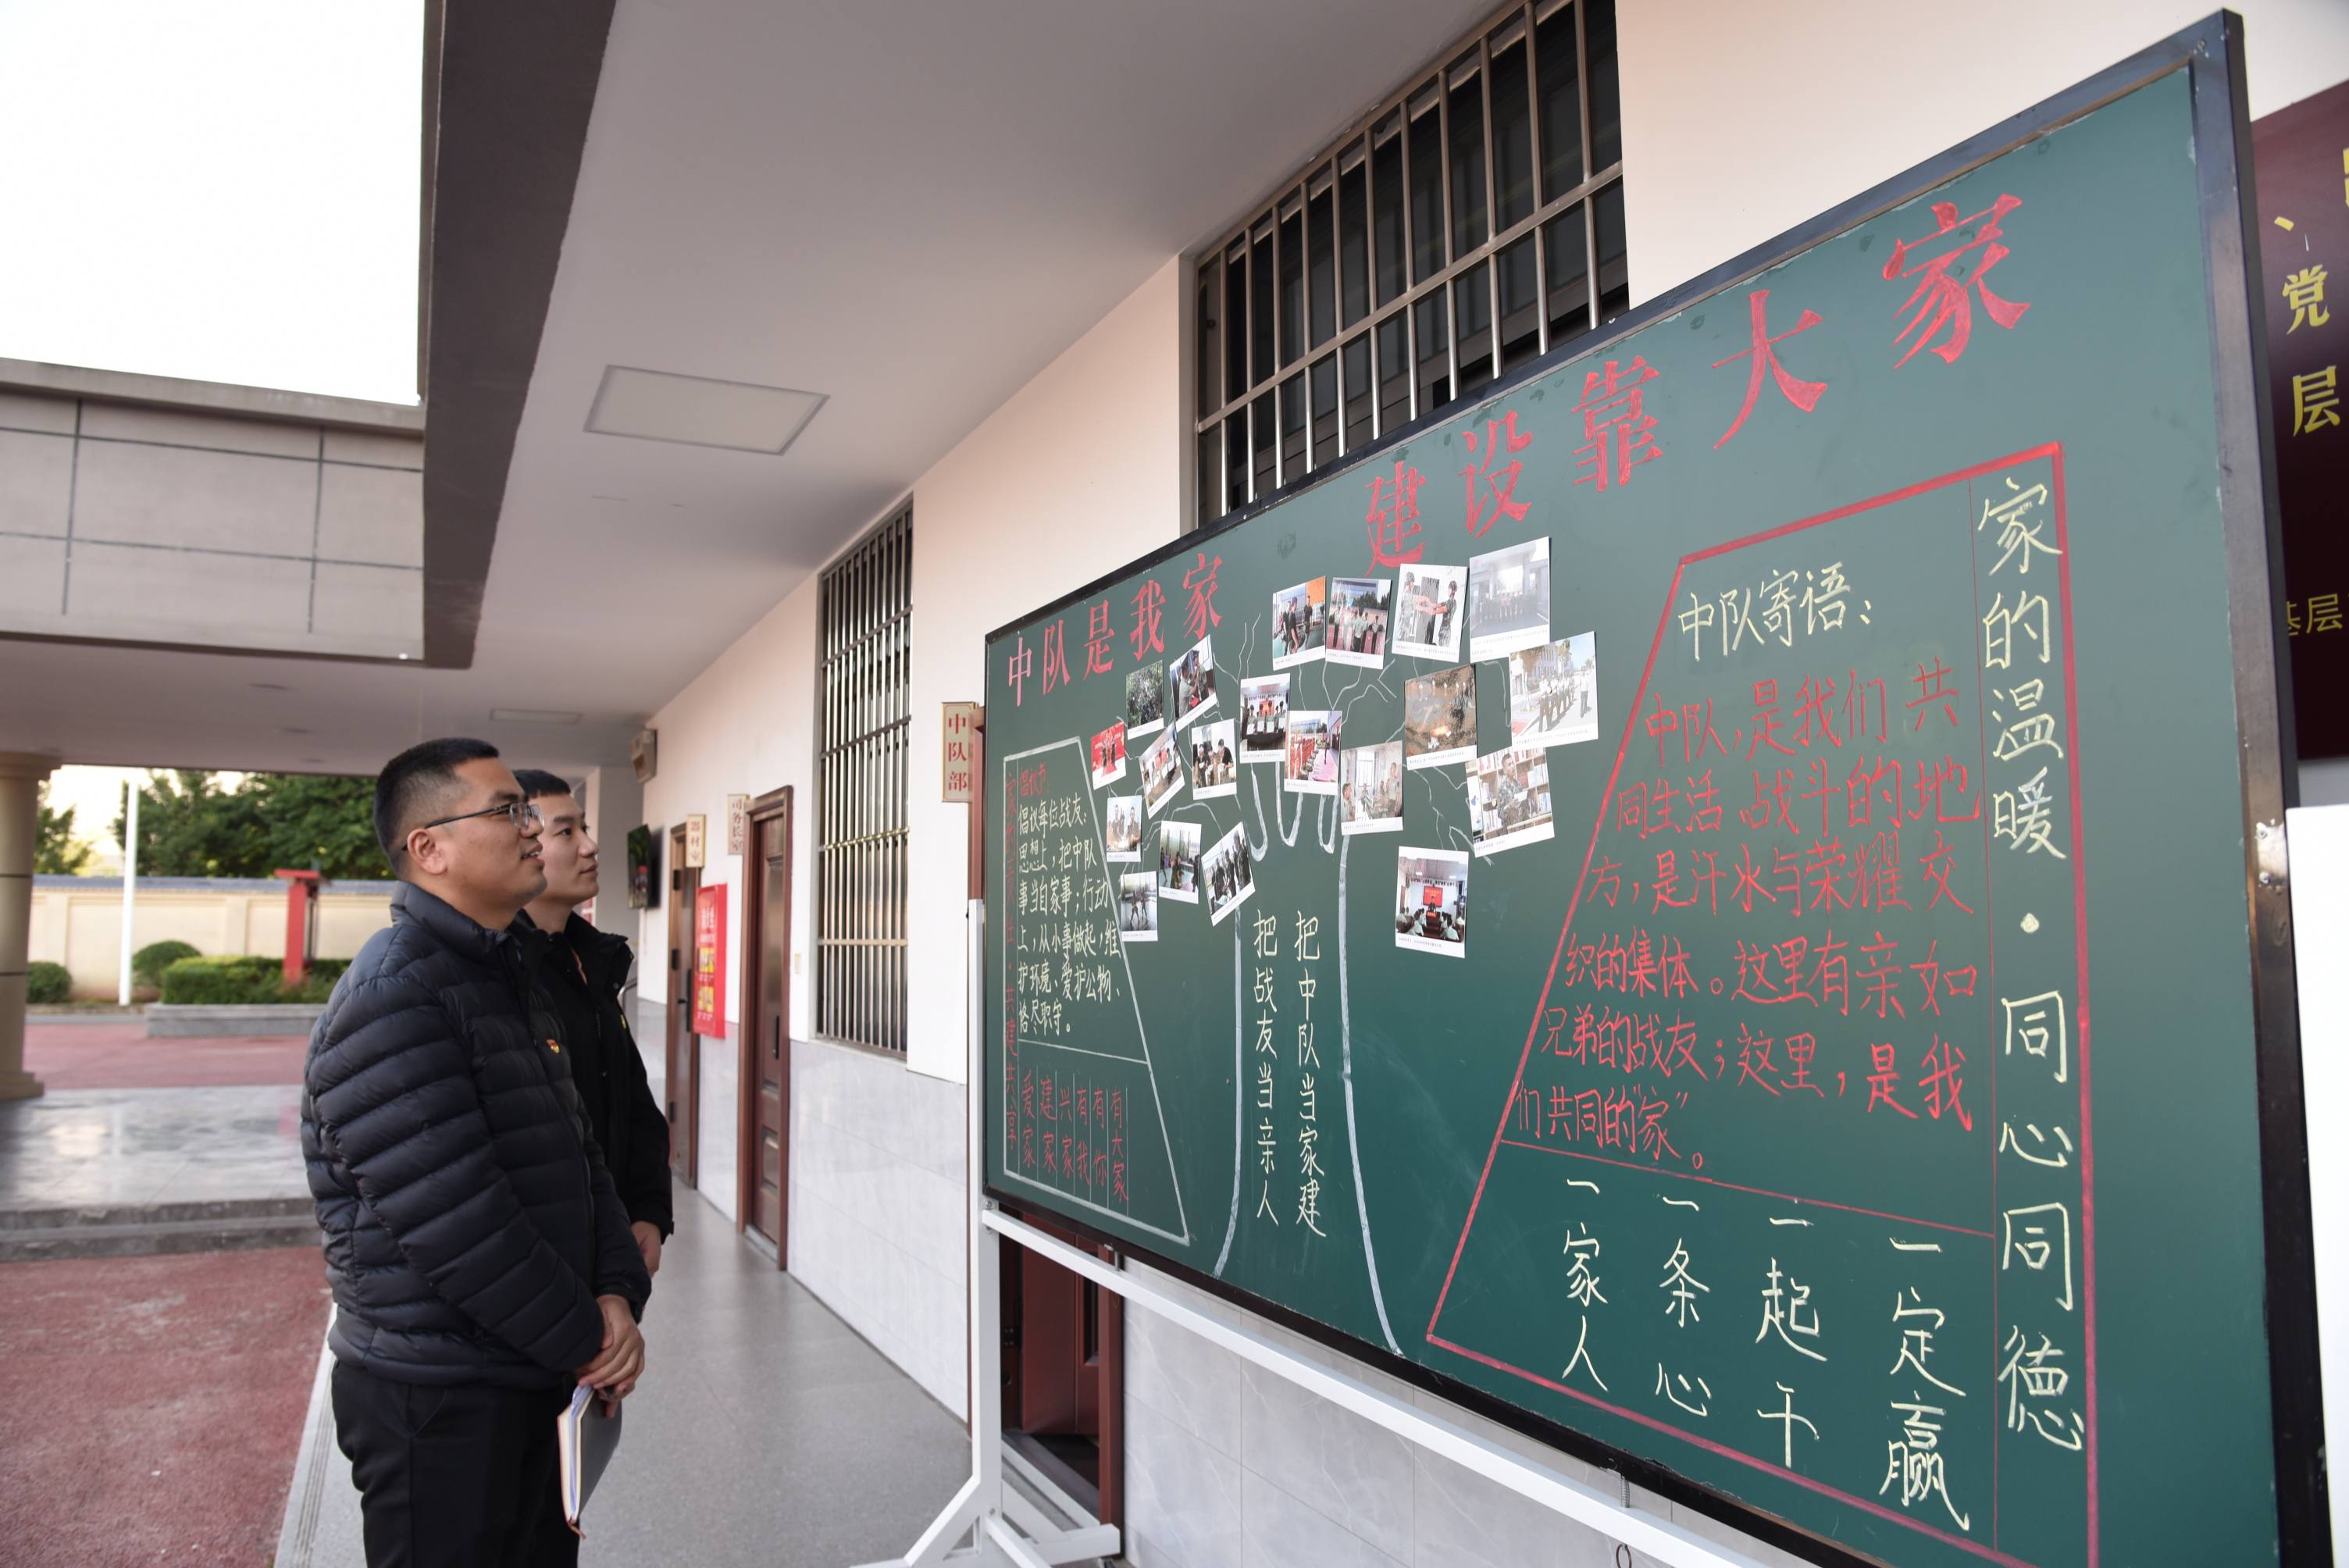 中队是我家 建设靠大家
倡议书:
倡议每位战友:
思想上,把中队
事当自家事;行动
上,从小事做起,维
护环境、爱护公物、
恪尽职守。
爱家
建家
兴家
有我
有你
有大家
把战友当亲人
把中队当家建
中队寄语:
中队,是我们共
同生活、战斗的地
方,是汗水与荣耀交
织的集体。这里有亲如
兄弟的战友;这里,是我
们共同的“家”。
一家人
一条心
一起干
一定赢
家的温暖·同心同德
中队部
司务长室
器材室
、党
层
基层